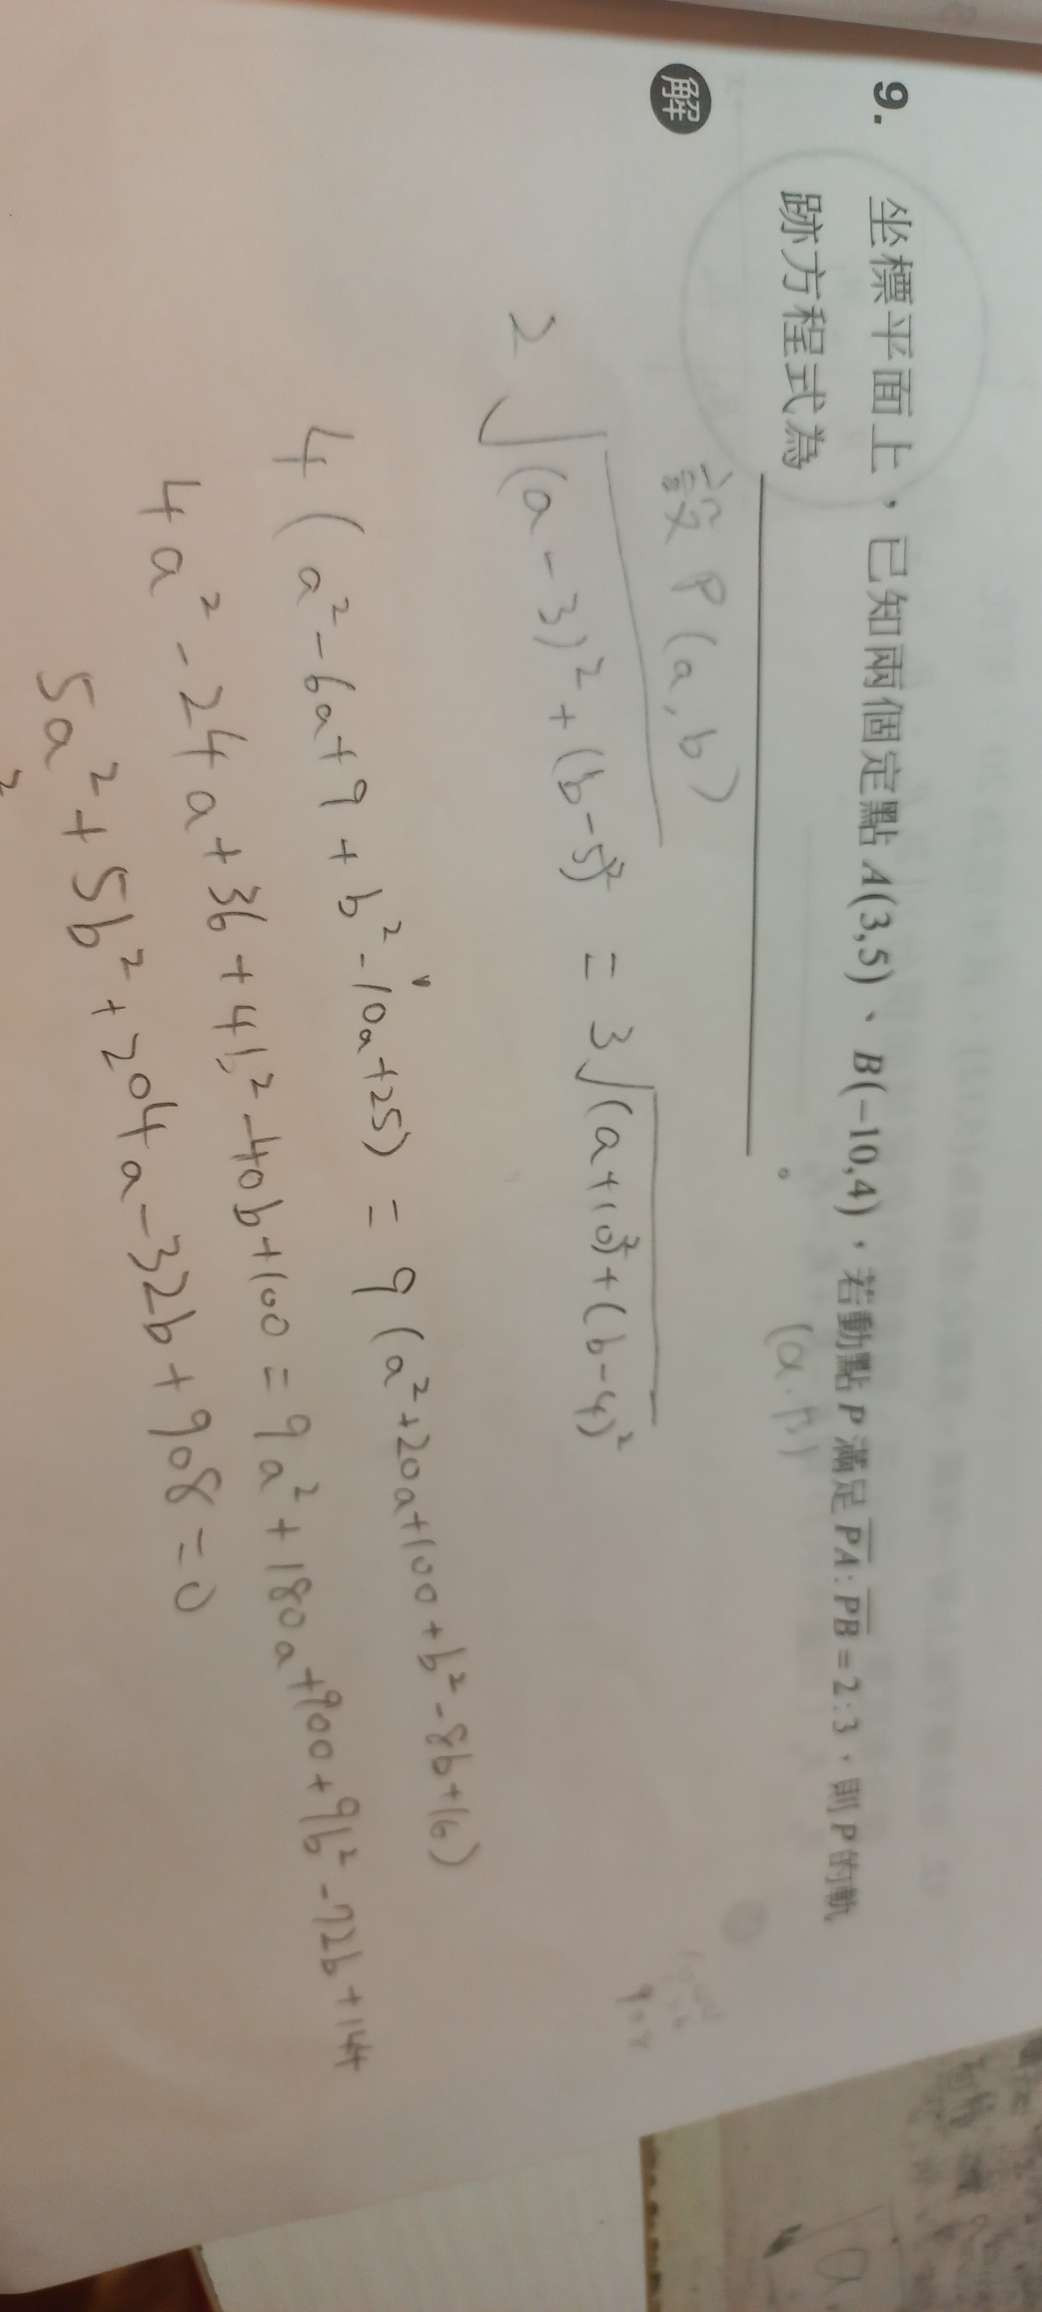 9. 坐標平面上，已知兩個定點 A(3,5)、B(-10,4)，若動點 P 滿足 PA : PB = 2 : 3，則 P 的軌
跡方程式為＿＿＿＿＿＿。
(α, β)
解
設 P(a, b)
2√((a-3)²+(b-5)²) = 3√((a+10)²+(b-4)²)
4(a²-6a+9+b²-10a+25) = 9(a²+20a+100+b²-8b+16)
4a²-24a+36+4b²-40b+100 = 9a²+180a+900+9b²-72b+144
5a²+5b²+204a-32b+908=0
908